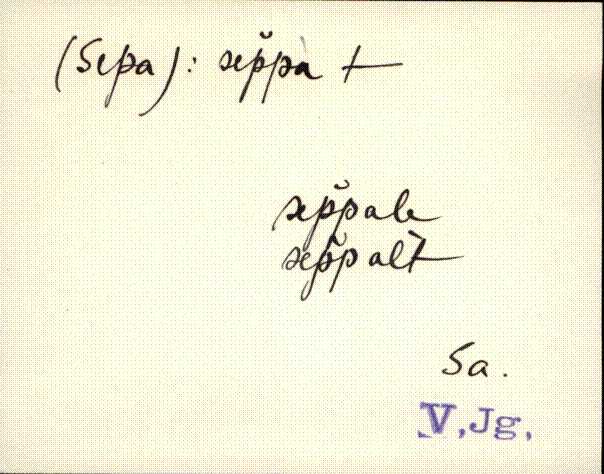 (Sepa): sep̆pa t
sep̆pale
sep̆palt
Sa.
V, Jg,